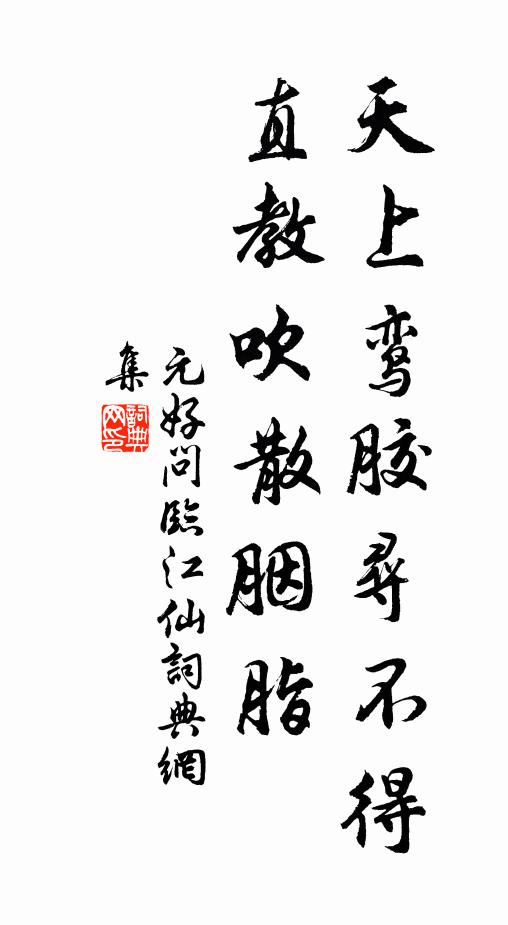 天上鸾胶寻不得
直教吹散胭脂
元好问临江仙詞典網
集
詞典
网印